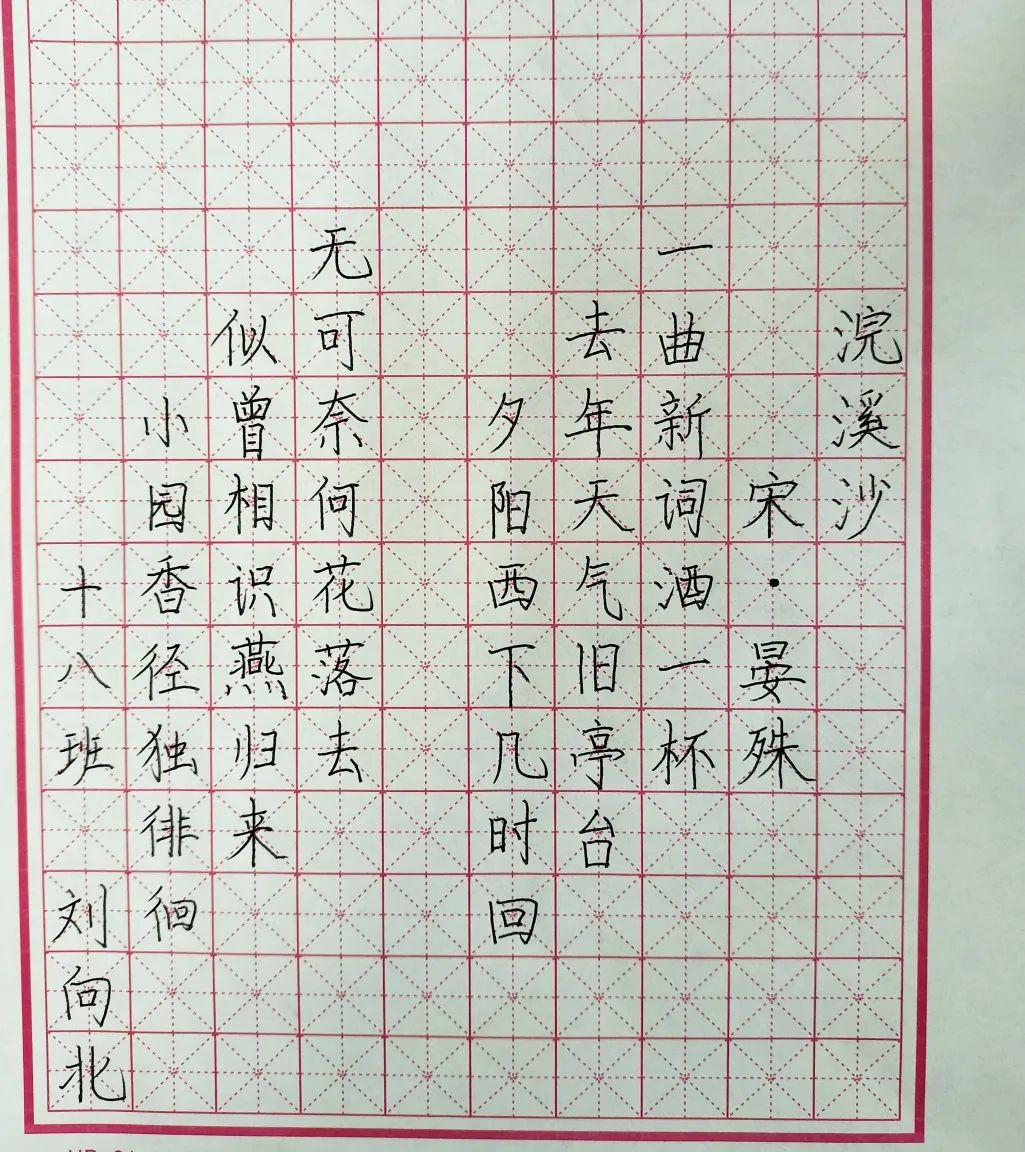 浣溪沙
宋·晏殊
一曲新词酒一杯
去年天气旧亭台
夕阳西下几时回
无可奈何花落去
似曾相识燕归来
小园香径独徘徊
十八班 刘向北